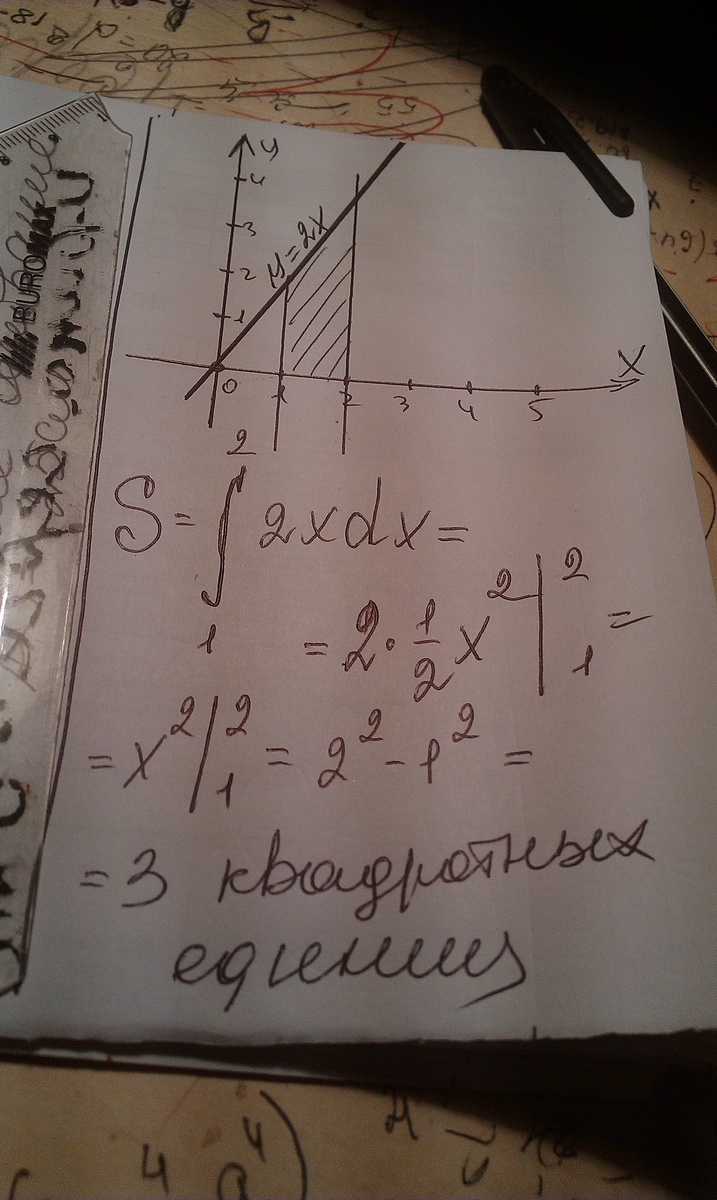 y
4
3
2
1
y = 2x
0 1 2 3 4 5 X
S = ∫₁² 2xdx =
= 2 · 1/2 x² |₁² =
= x² |₁² = 2² - 1² =
= 3 квадратных
единиц
BUROMAX
4 a⁴)